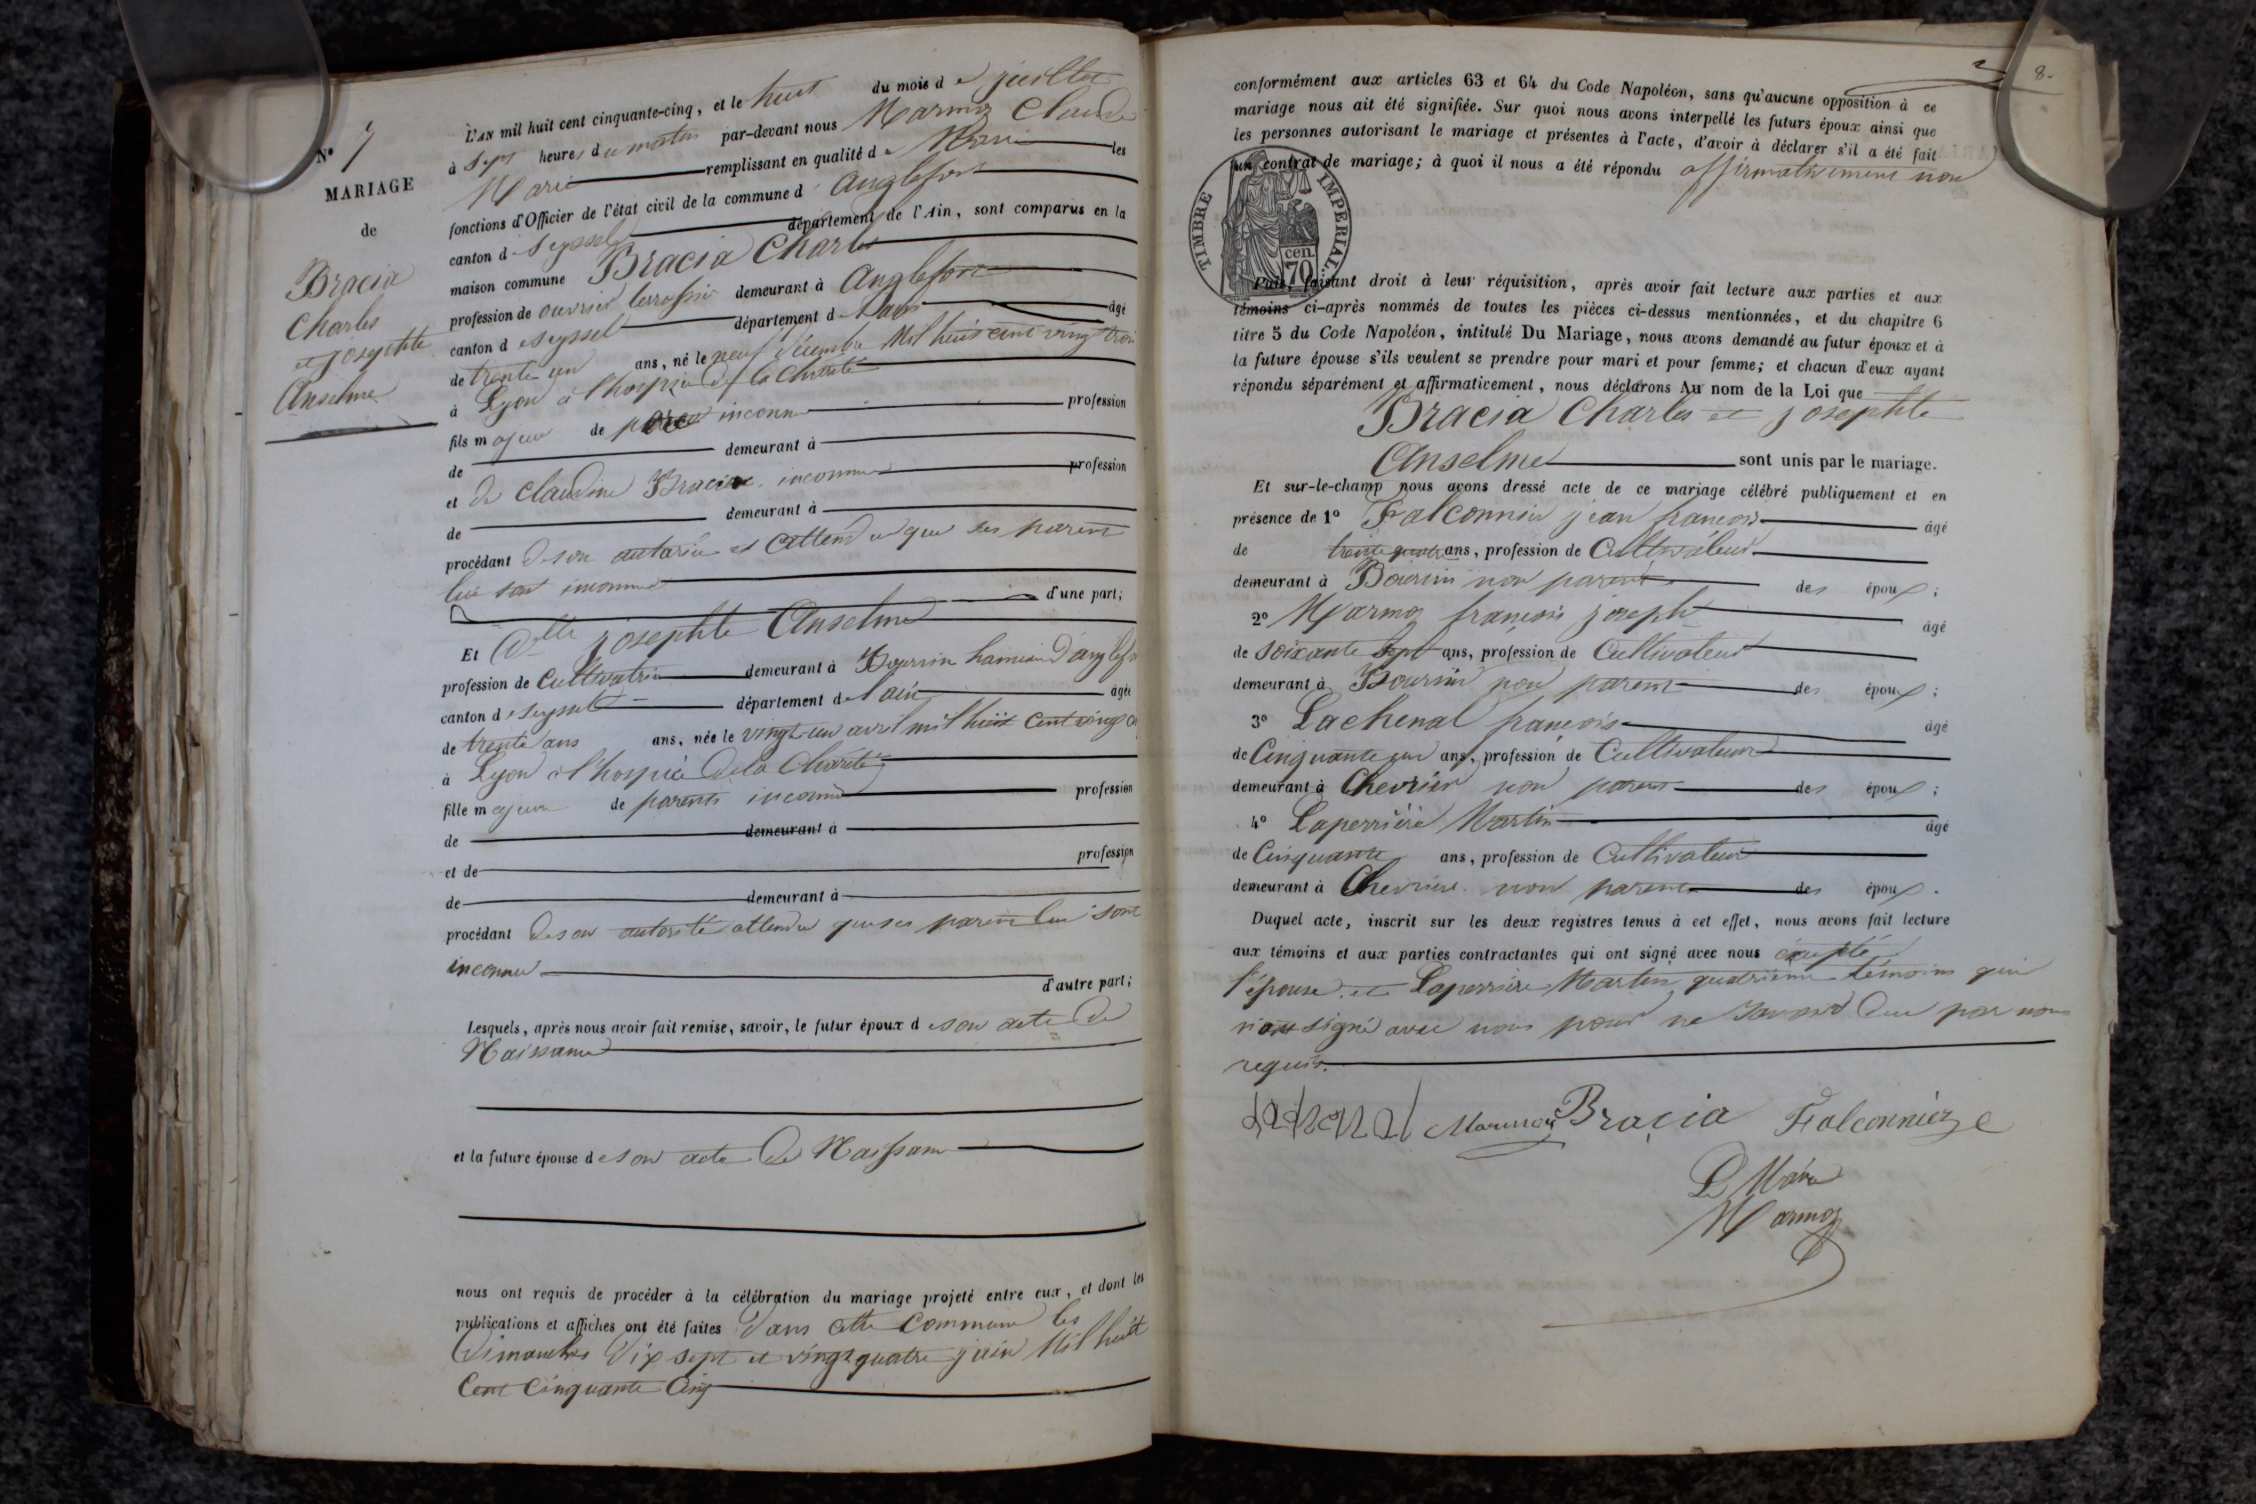 N° 7
MARIAGE
de
Bracia
Charles
et josephte
Anselme
L'AN mil huit cent cinquante-cinq, et le huit du mois de juillet
à sept heures du matin par-devant nous Marmoz Claude
Marie remplissant en qualité de Maire les
fonctions d'Officier de l'état civil de la commune d'anglefort
canton de Seyssel département de l'Ain, sont comparus en la
maison commune Bracia Charles
profession de ouvrier terrassier demeurant à Anglefort
canton de Seyssel département de l'ain âgé
de trente un ans, né le neuf décembre Mil huit cent vingt trois
à Lyon à l'hospice de la Charité
fils majeur de père inconnu profession
de demeurant à
et de claudine Bracia inconnue profession
de demeurant à
procédant de son autorité et attendu que ses parent
lui sont inconnus d'une part;
Et Dlle josephte Anselme
profession de cultivatrice demeurant à Bourcin hameau d'anglefort
canton de Seyssel département de l'ain âgée
de trente ans ans, née le vingt un avril mil huit cent vingt
à Lyon à l'hospice de la Charité
fille majeure de parents inconnu profession
de demeurant à
et de profession
de demeurant à
procédant de son autorité attendu que ses parent lui sont
inconnu d'autre part;
Lesquels, après nous avoir fait remise, savoir, le futur époux de son acte de
Naissance
et la future épouse de son acte de Naissance
nous ont requis de procéder à la célébration du mariage projeté entre eux, et dont les
publications et affiches ont été faites dans cette commune les
Dimanches dix sept et vingt quatre juin Mil huit
Cent Cinquante Cinq
8.
conformément aux articles 63 et 64 du Code Napoléon, sans qu'aucune opposition à ce
mariage nous ait été signifiée. Sur quoi nous avons interpellé les futurs époux ainsi que
les personnes autorisant le mariage et présentes à l'acte, d'avoir à déclarer s'il a été fait
un contrat de mariage; à quoi il nous a été répondu affirmativement non
TIMBRE IMPERIAL.
cen.
70
Puis, faisant droit à leur réquisition, après avoir fait lecture aux parties et aux
témoins ci-après nommés de toutes les pièces ci-dessus mentionnées, et du chapitre 6
titre 5 du Code Napoléon, intitulé Du Mariage, nous avons demandé au futur époux et à
la future épouse s'ils veulent se prendre pour mari et pour femme; et chacun d'eux ayant
répondu séparément et affirmativement, nous déclarons Au nom de la Loi que
Bracia Charles et josephte
Anselme sont unis par le mariage.
Et sur-le-champ nous avons dressé acte de ce mariage célébré publiquement et en
présence de 1° Falconnier jean françois âgé
de trente quatre ans, profession de Cultivateur
demeurant à Bourcin non parent des époux;
2° Marmoz françois joseph âgé
de soixante sept ans, profession de Cultivateur
demeurant à Bourcin non parent des époux;
3° Lachenal françois âgé
de Cinquante un ans, profession de Cultivateur
demeurant à Chevrier non parent des époux;
4° Laperrière Martin âgé
de Cinquante ans, profession de Cultivateur
demeurant à Chevrier non parent des époux.
Duquel acte, inscrit sur les deux registres tenus à cet effet, nous avons fait lecture
aux témoins et aux parties contractantes qui ont signé avec nous excepté
l'épouse et Laperrière Martin quatrième témoins qui
n'ont signé avec nous pour ne savoir de par nous
requis.
Lachenal Marmoz Bracia Falconnier
Le Maire
Marmoz